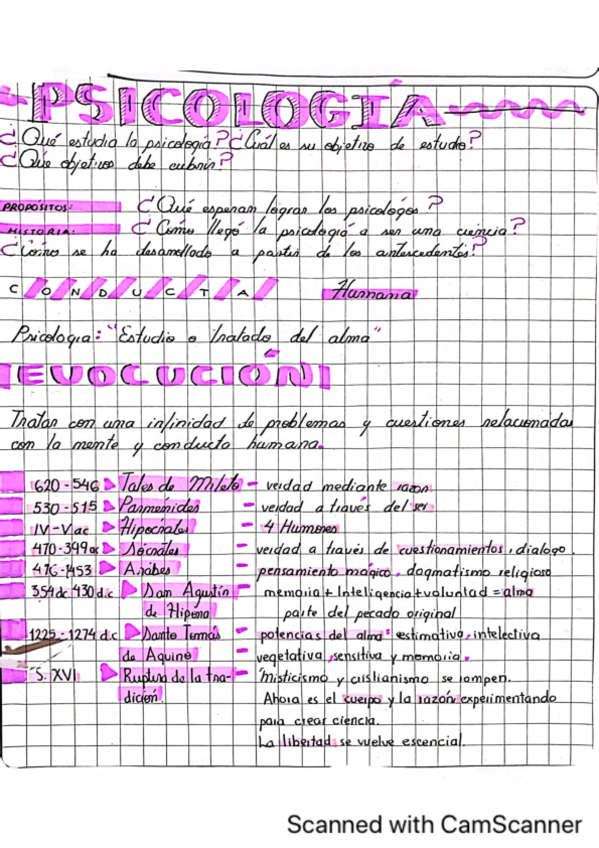 PSICOLOGÍA
¿Qué estudia la psicología? ¿Cuál es su objetivo de estudio?
¿Que objetivos debe cubrir?
PROPÓSITOS: ¿Qué esperan lograr los psicólogos?
HISTORIA: ¿Como llegó la psicología a ser una ciencia?
¿Como se ha desarrollado a partir de los antecedentes?
CONDUCTA Humana
Psicologia: "Estudio o tratado del alma"
EVOLUCIÓN
Tratar con una infinidad de problemas y cuestiones relacionadas
con la mente y conducta humana.
620-546 Tales de Mileto - verdad mediante razon
530-515 Parmenides - verdad a través del ser
IV-V ac Hipócrates - 4 Humores
470-399 ac Sócrates - verdad a través de cuestionamientos, dialogo.
476-1453 Arabes - pensamiento mágico, dogmatismo religioso
354 dc 430 d.c San Agustín - memoria + Inteligencia + voluntad = alma
de Hipona parte del pecado original
1225-1274 d.c Santo Tomás - potencias del alma: estimativa, intelectiva
de Aquino - vegetativa, sensitiva y memoria.
S. XVI Ruptura de la tra- - Misticismo y cristianismo se rompen.
dición. Ahora es el cuerpo y la razón experimentando
para crear ciencia.
La libertad se vuelve escencial.
Scanned with CamScanner